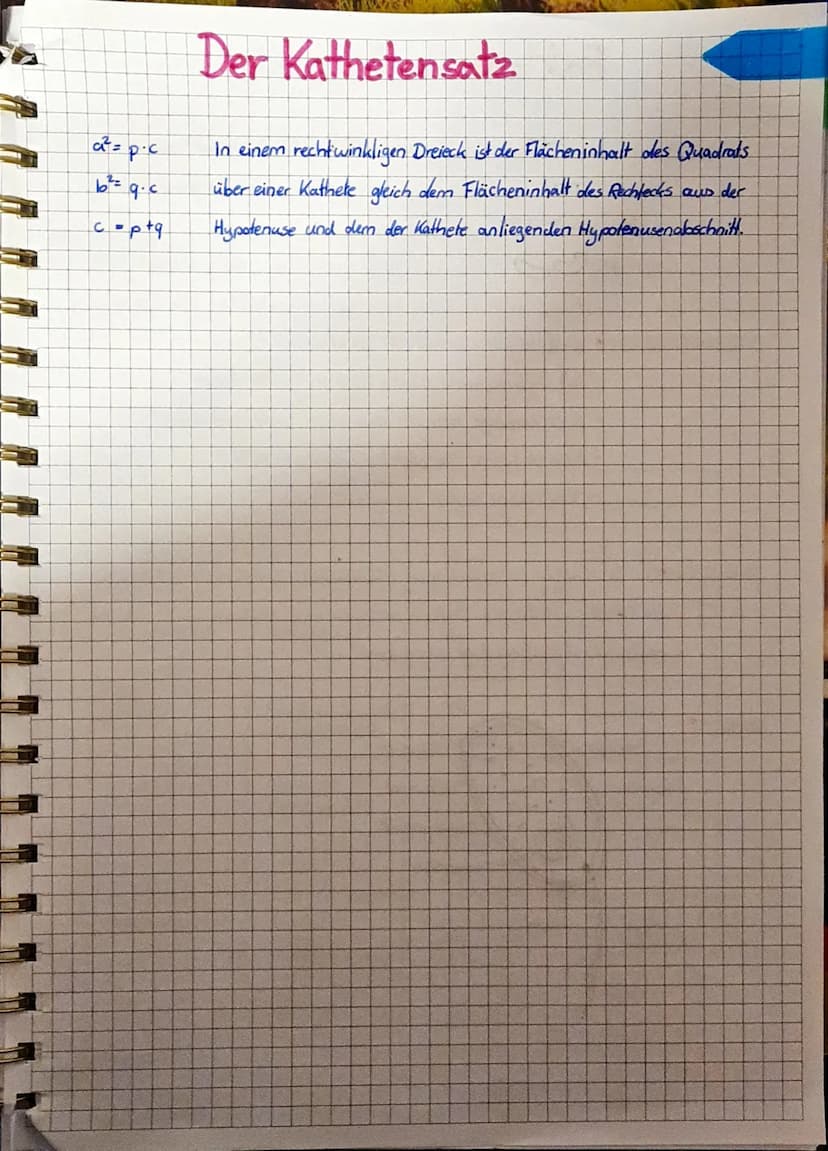 Der Kathetensatz
a² = p·c In einem rechtwinkligen Dreieck ist der Flächeninhalt des Quadrats
b² = q·c über einer Kathete gleich dem Flächeninhalt des Rechtecks aus der
c = p+q Hypotenuse und dem der Kathete anliegenden Hypotenusenabschnitt.